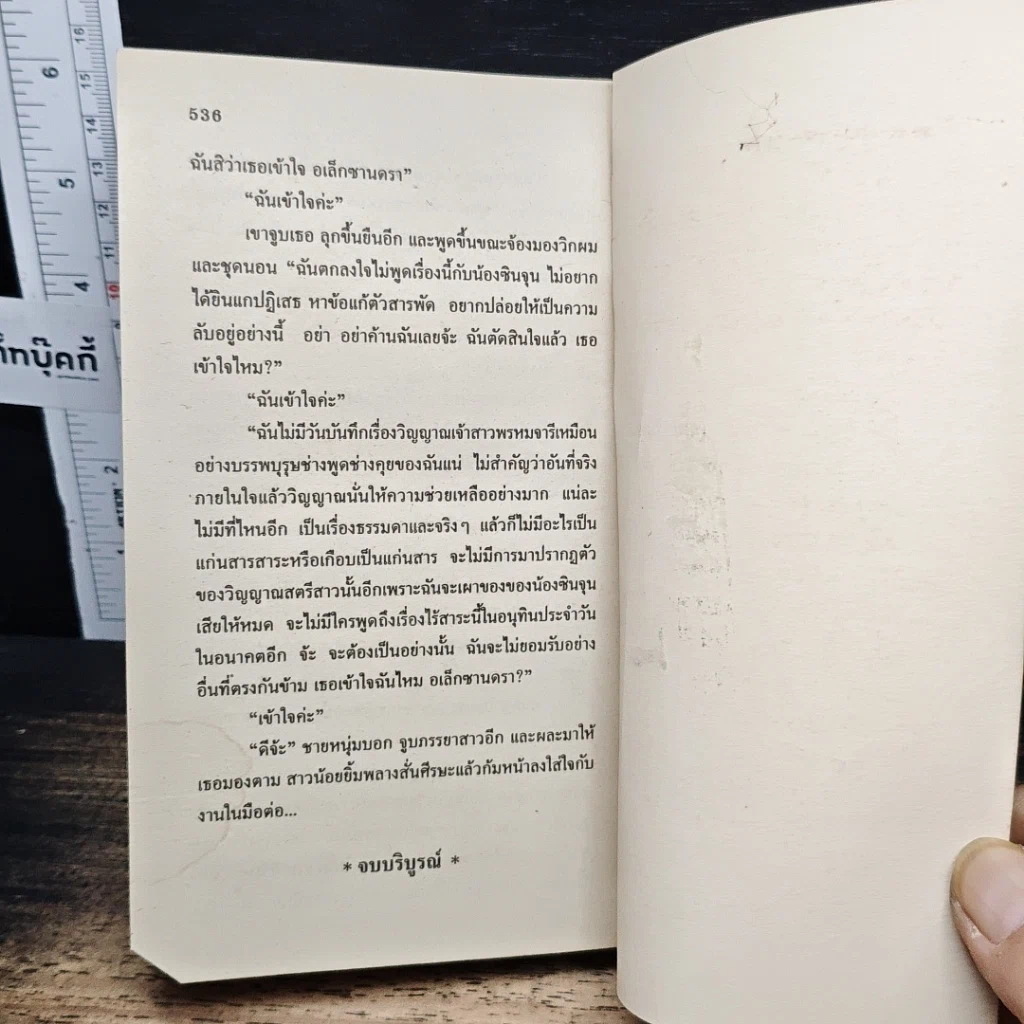 536
ฉันสิว่าเธอเข้าใจ อเล็กซานดรา”
“ฉันเข้าใจค่ะ”
เขาจูบเธอ ลุกขึ้นยืนอีก และพูดขึ้นขณะจ้องมองวิกผม
และชุดนอน “ฉันตกลงใจไม่พูดเรื่องนี้กับน้องซินจุน ไม่อยาก
ได้ยินแกปฏิเสธ หาข้อแก้ตัวสารพัด อยากปล่อยให้เป็นความ
ลับอยู่อย่างนี้ อย่า อย่าค้านฉันเลยจ้ะ ฉันตัดสินใจแล้ว เธอ
เข้าใจไหม?”
“ฉันเข้าใจค่ะ”
“ฉันไม่มีวันบันทึกเรื่องวิญญาณเจ้าสาวพรหมจารีเหมือน
อย่างบรรพบุรุษช่างพูดช่างคุยของฉันแน่ ไม่สำคัญว่าอันที่จริง
ภายในใจแล้ววิญญาณนั่นให้ความช่วยเหลืออย่างมาก แน่ละ
ไม่มีที่ไหนอีก เป็นเรื่องธรรมดาและจริงๆ แล้วก็ไม่มีอะไรเป็น
แก่นสารสาระหรือเกือบเป็นแก่นสาร จะไม่มีการมาปรากฏตัว
ของวิญญาณสตรีสาวนั้นอีกเพราะฉันจะเผาของของน้องซินจุน
เสียให้หมด จะไม่มีใครพูดถึงเรื่องไร้สาระนี้ในอนุทินประจำวัน
ในอนาคตอีก จ้ะ จะต้องเป็นอย่างนั้น ฉันจะไม่ยอมรับอย่าง
อื่นที่ตรงกันข้าม เธอเข้าใจฉันไหม อเล็กซานดรา?”
“เข้าใจค่ะ”
“ดีจ้ะ” ชายหนุ่มบอก จูบภรรยาสาวอีก และผละมาให้
เธอมองตาม สาวน้อยยิ้มพลางสั่นศีรษะแล้วก้มหน้าลงใส่ใจกับ
งานในมือต่อ...
* จบบริบูรณ์ *
6
5
4
2
1
16
15
14
13
12
11
10
บุ๊คกี้